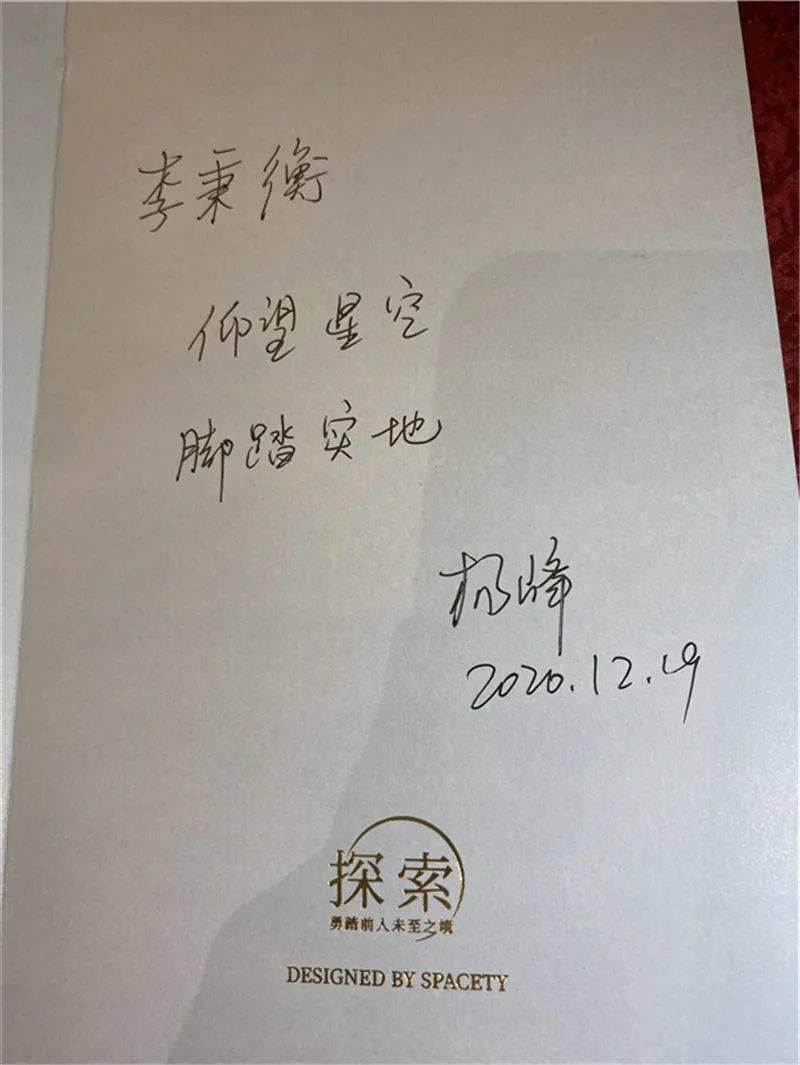 李秉衡
仰望星空
脚踏实地
杨峰
2020.12.19
探索
勇踏前人未至之境
DESIGNED BY SPACETY